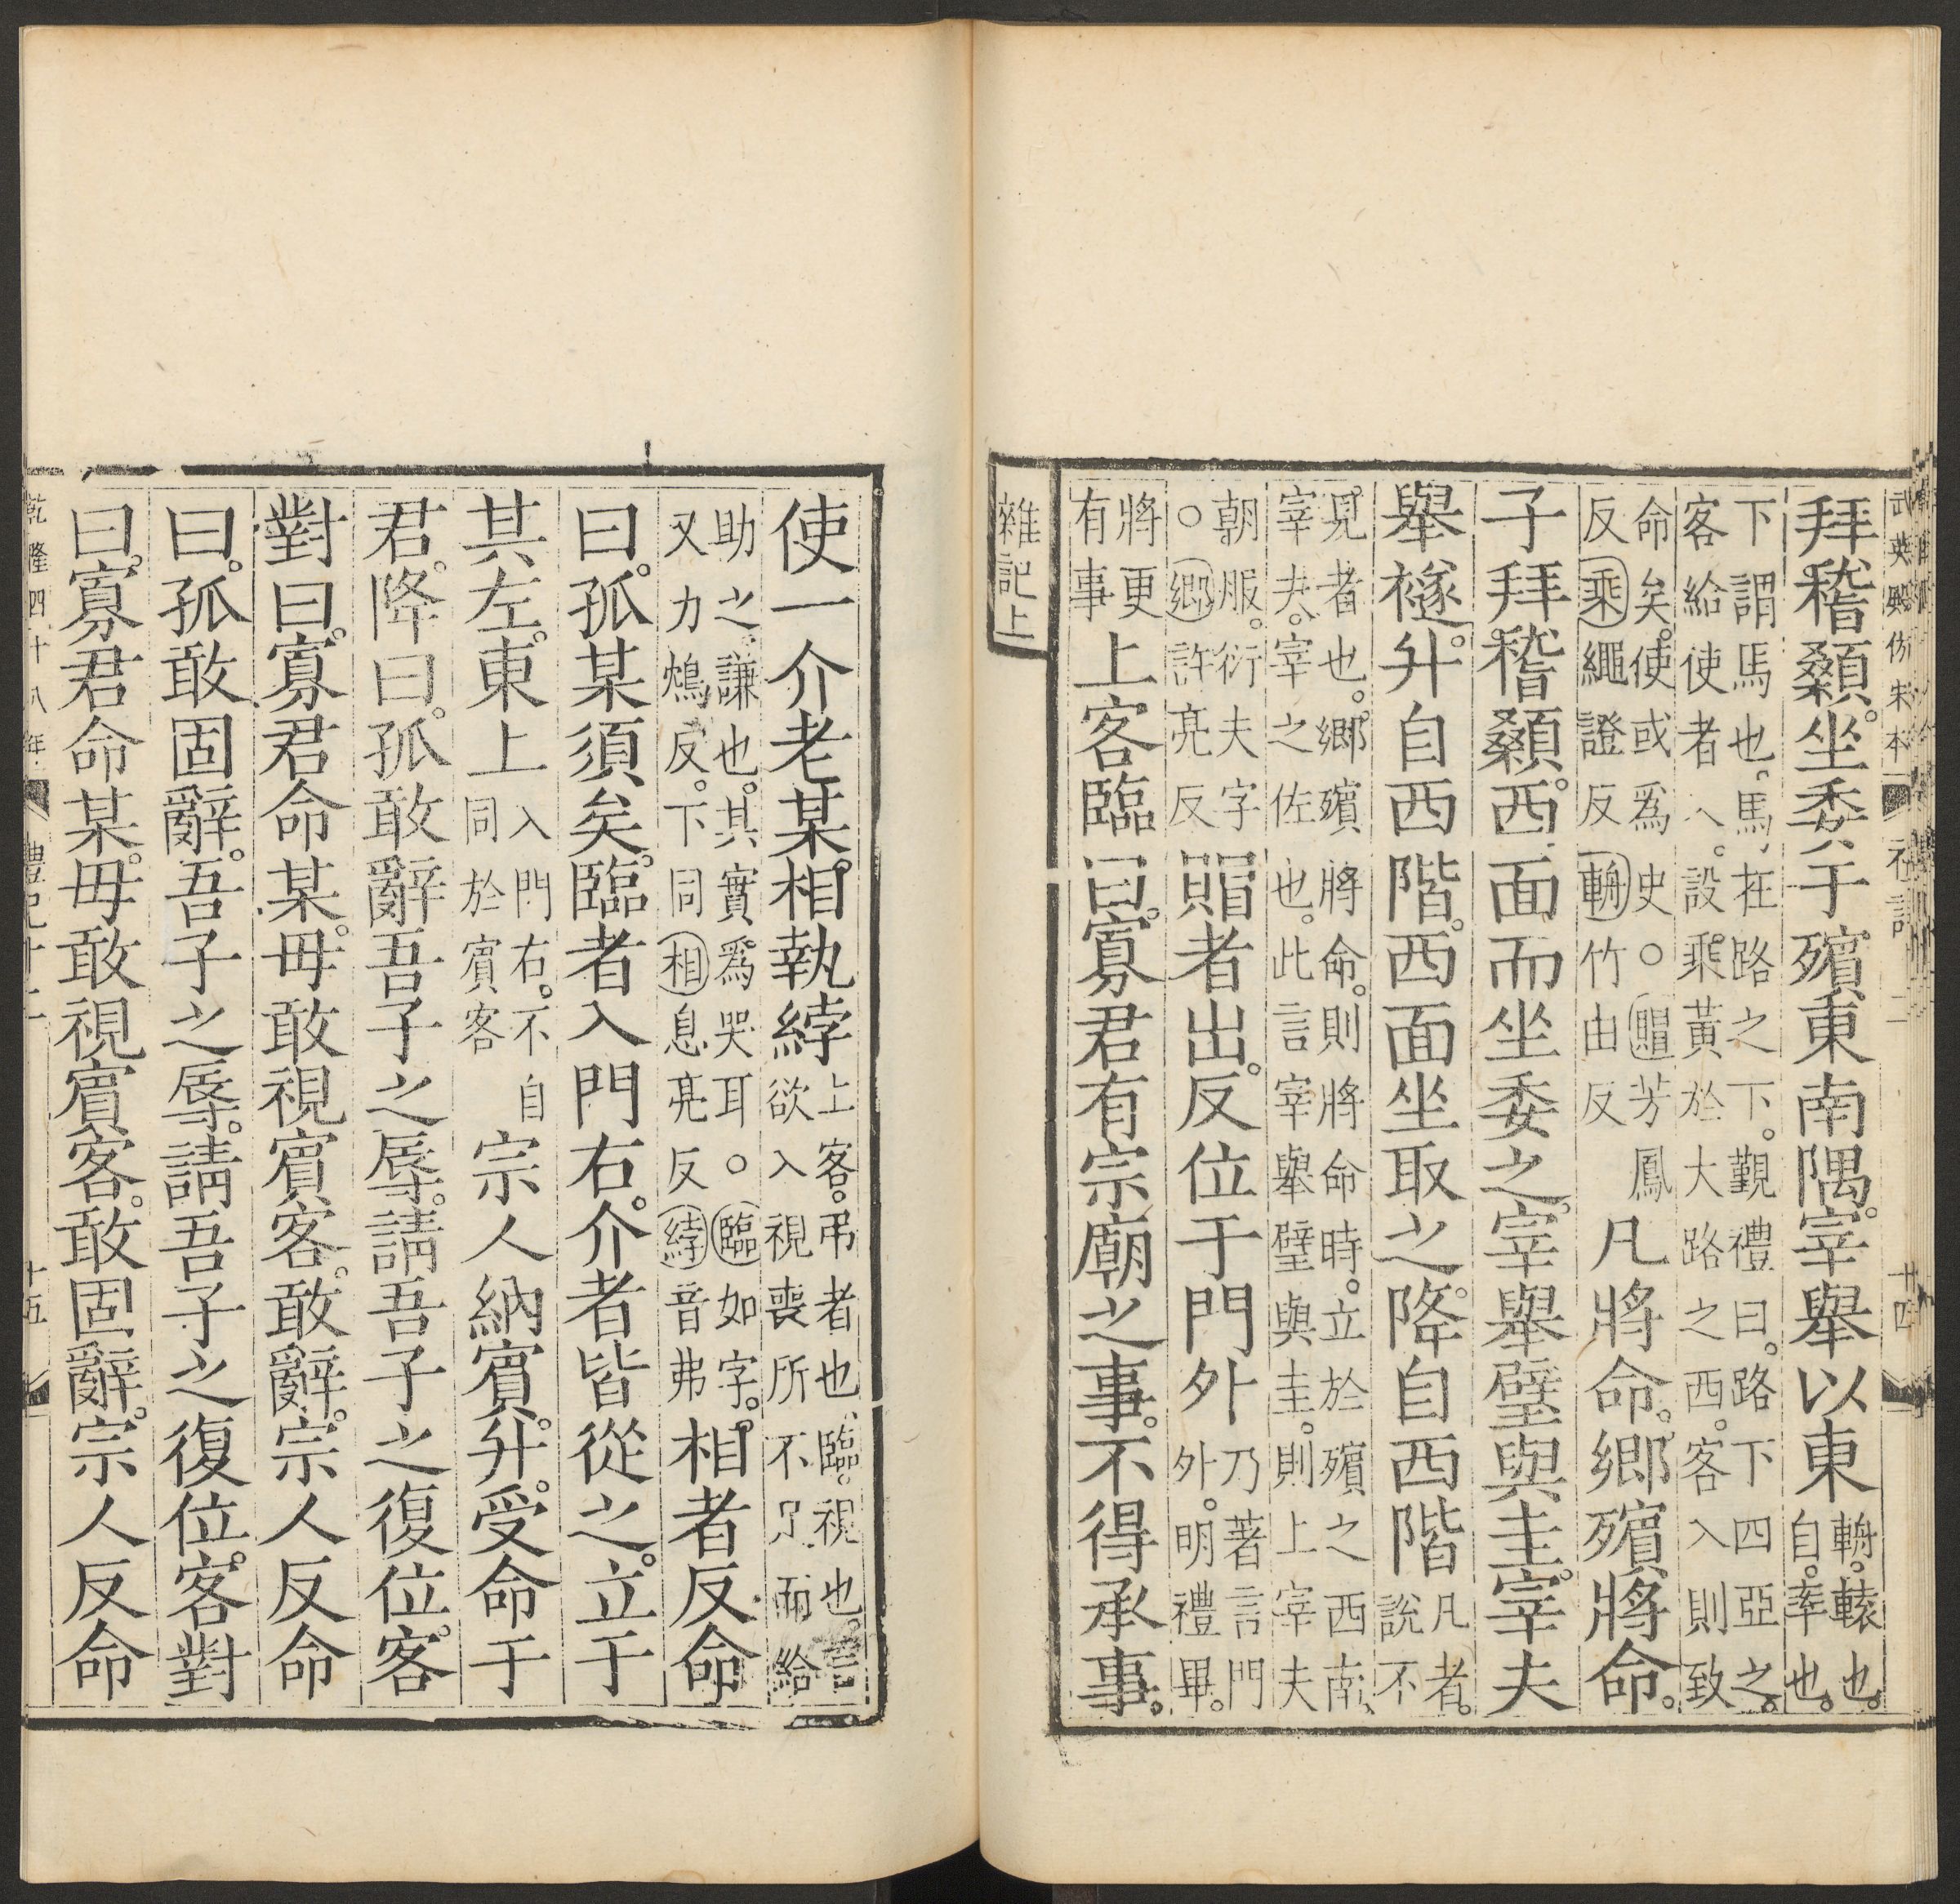 武英殿仿宋本 禮記二 十四
拜稽顙。坐委于殯東南隅。宰舉以東輈。轅也。自。率也。
下謂馬也、馬在路之下。覲禮曰。路下四亞之。
客給使者入。設乘黃於大路之西。客入則致
命矣。使或爲史。○賵芳鳳
反乘繩證反輈竹由反
凡將命。鄉殯將命。
子拜。稽顙。西面而坐委之。宰舉璧與圭。宰夫
舉襚。升自西階。西面坐取之。降自西階凡者。說不
見者也。鄉殯將命。則將命時。立於殯之西南、
宰夫。宰之佐也。此言宰舉璧與圭。則上宰夫
朝服。衍夫字
○鄉許亮反
賵者出。反位于門外乃著言門外。明禮畢。
將更有事上客臨曰。寡君有宗廟之事。不得承事。
雜記上
使一介老某。相執綍
上客。弔者也、臨。視也。言
欲入視喪所不足而給
助之、謙也。其實爲哭耳。○臨如字。
又力鴆反。下同相息亮反綍音弗
相者反命
曰。孤某須矣。臨者入門右。介者皆從之。立于
其左。東上入門右。不自同於賓客宗人納賓。升。受命于
君。降曰。孤敢辭吾子之辱。請吾子之復位。客
對曰。寡君命某。毋敢視賓客。敢辭。宗人反命
曰。孤敢固辭。吾子之辱。請吾子之復位。客對
曰。寡君命某。毋敢視賓客。敢固辭。宗人反命
乾隆四十八年 禮記十二 十五